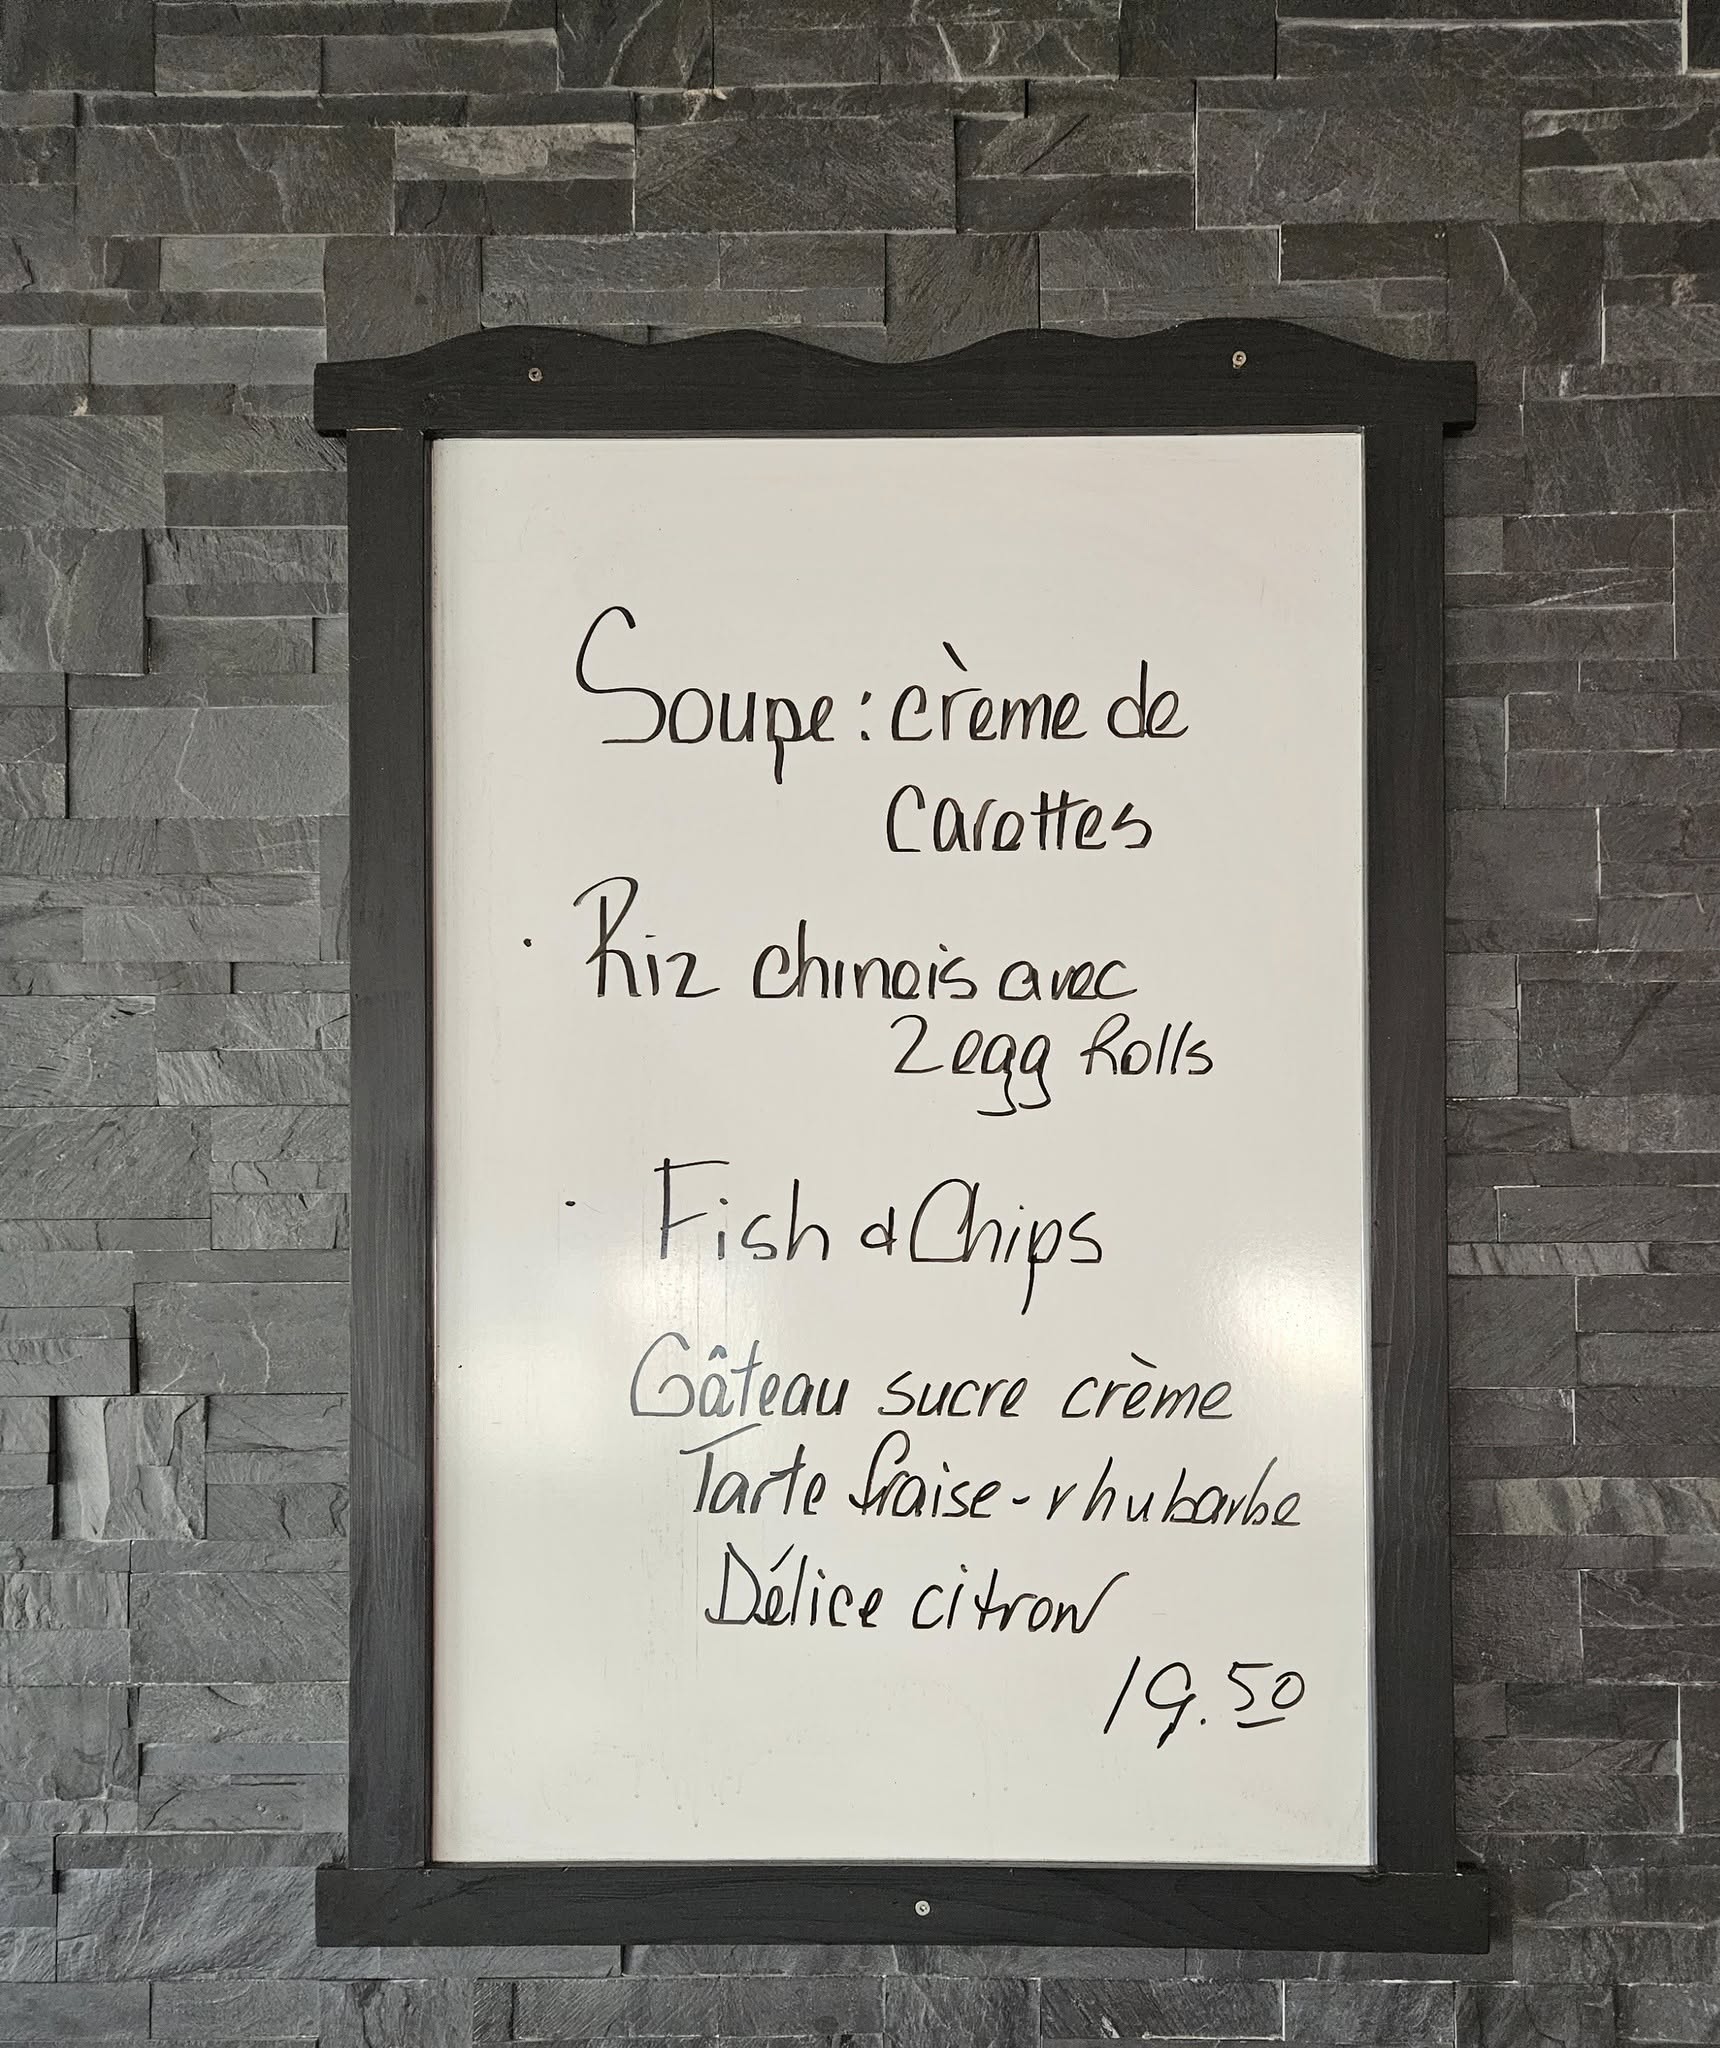 Soupe : crème de
carottes
· Riz chinois avec
2 egg Rolls
· Fish & Chips
Gâteau sucre crème
Tarte fraise-rhubarbe
Délice citron
19.50